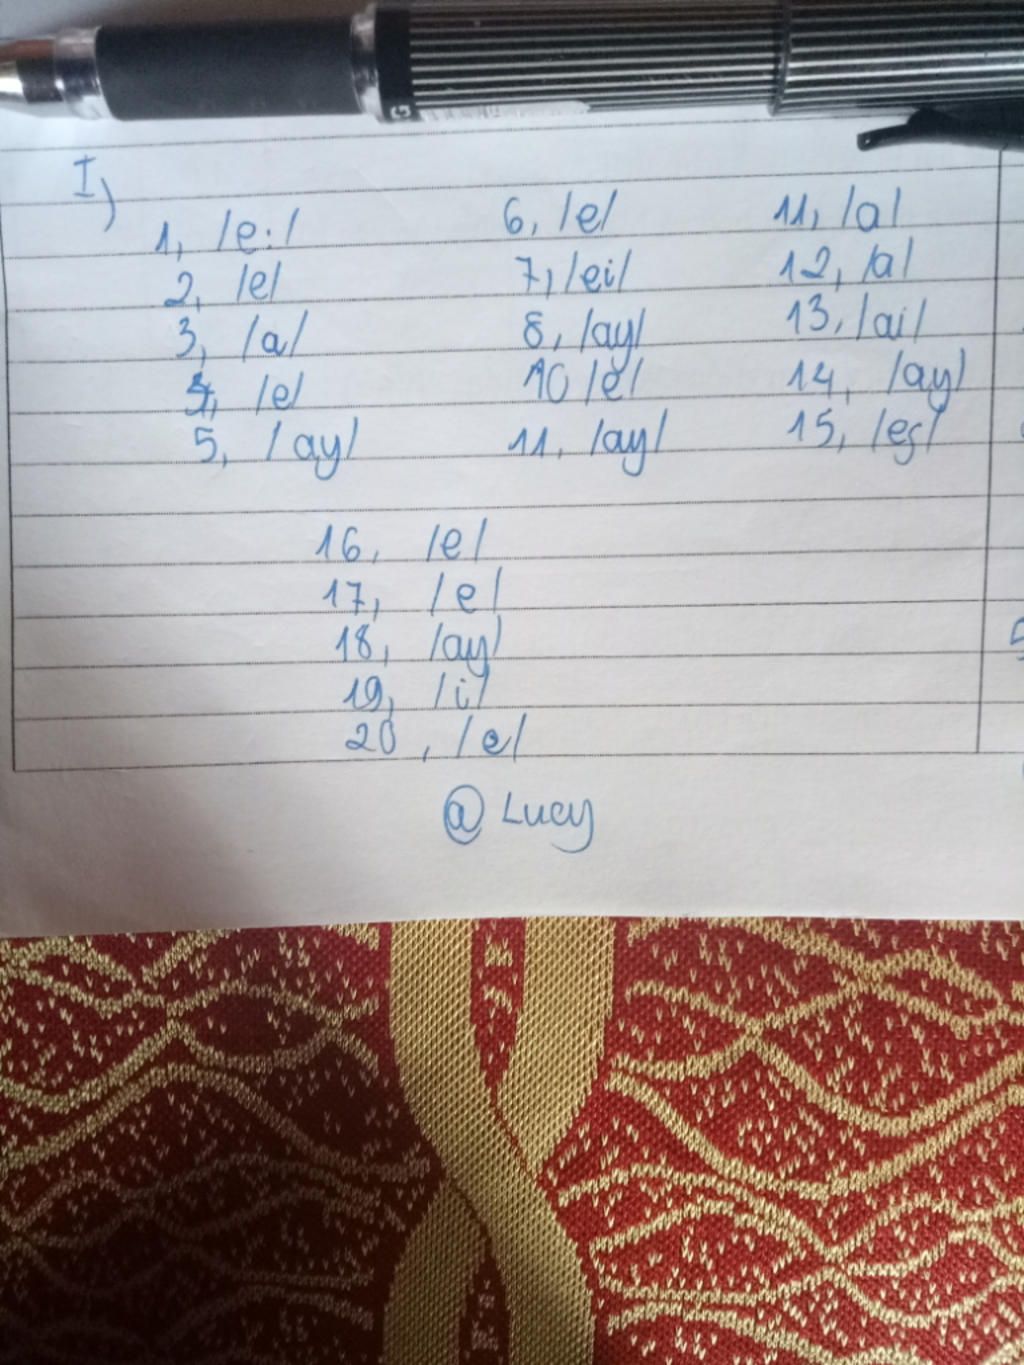 I)
1, /e:/
2, /e/
3, /a/
4, /e/
5, /ay/
6, /e/
7, /ei/
8, /ay/
10 /e/
11, /ay/
11, /a/
12, /a/
13, /ai/
14, /ay/
15, /eş/
16, /e/
17, /e/
18, /ay/
19, /i/
20, /e/
@ Lucy